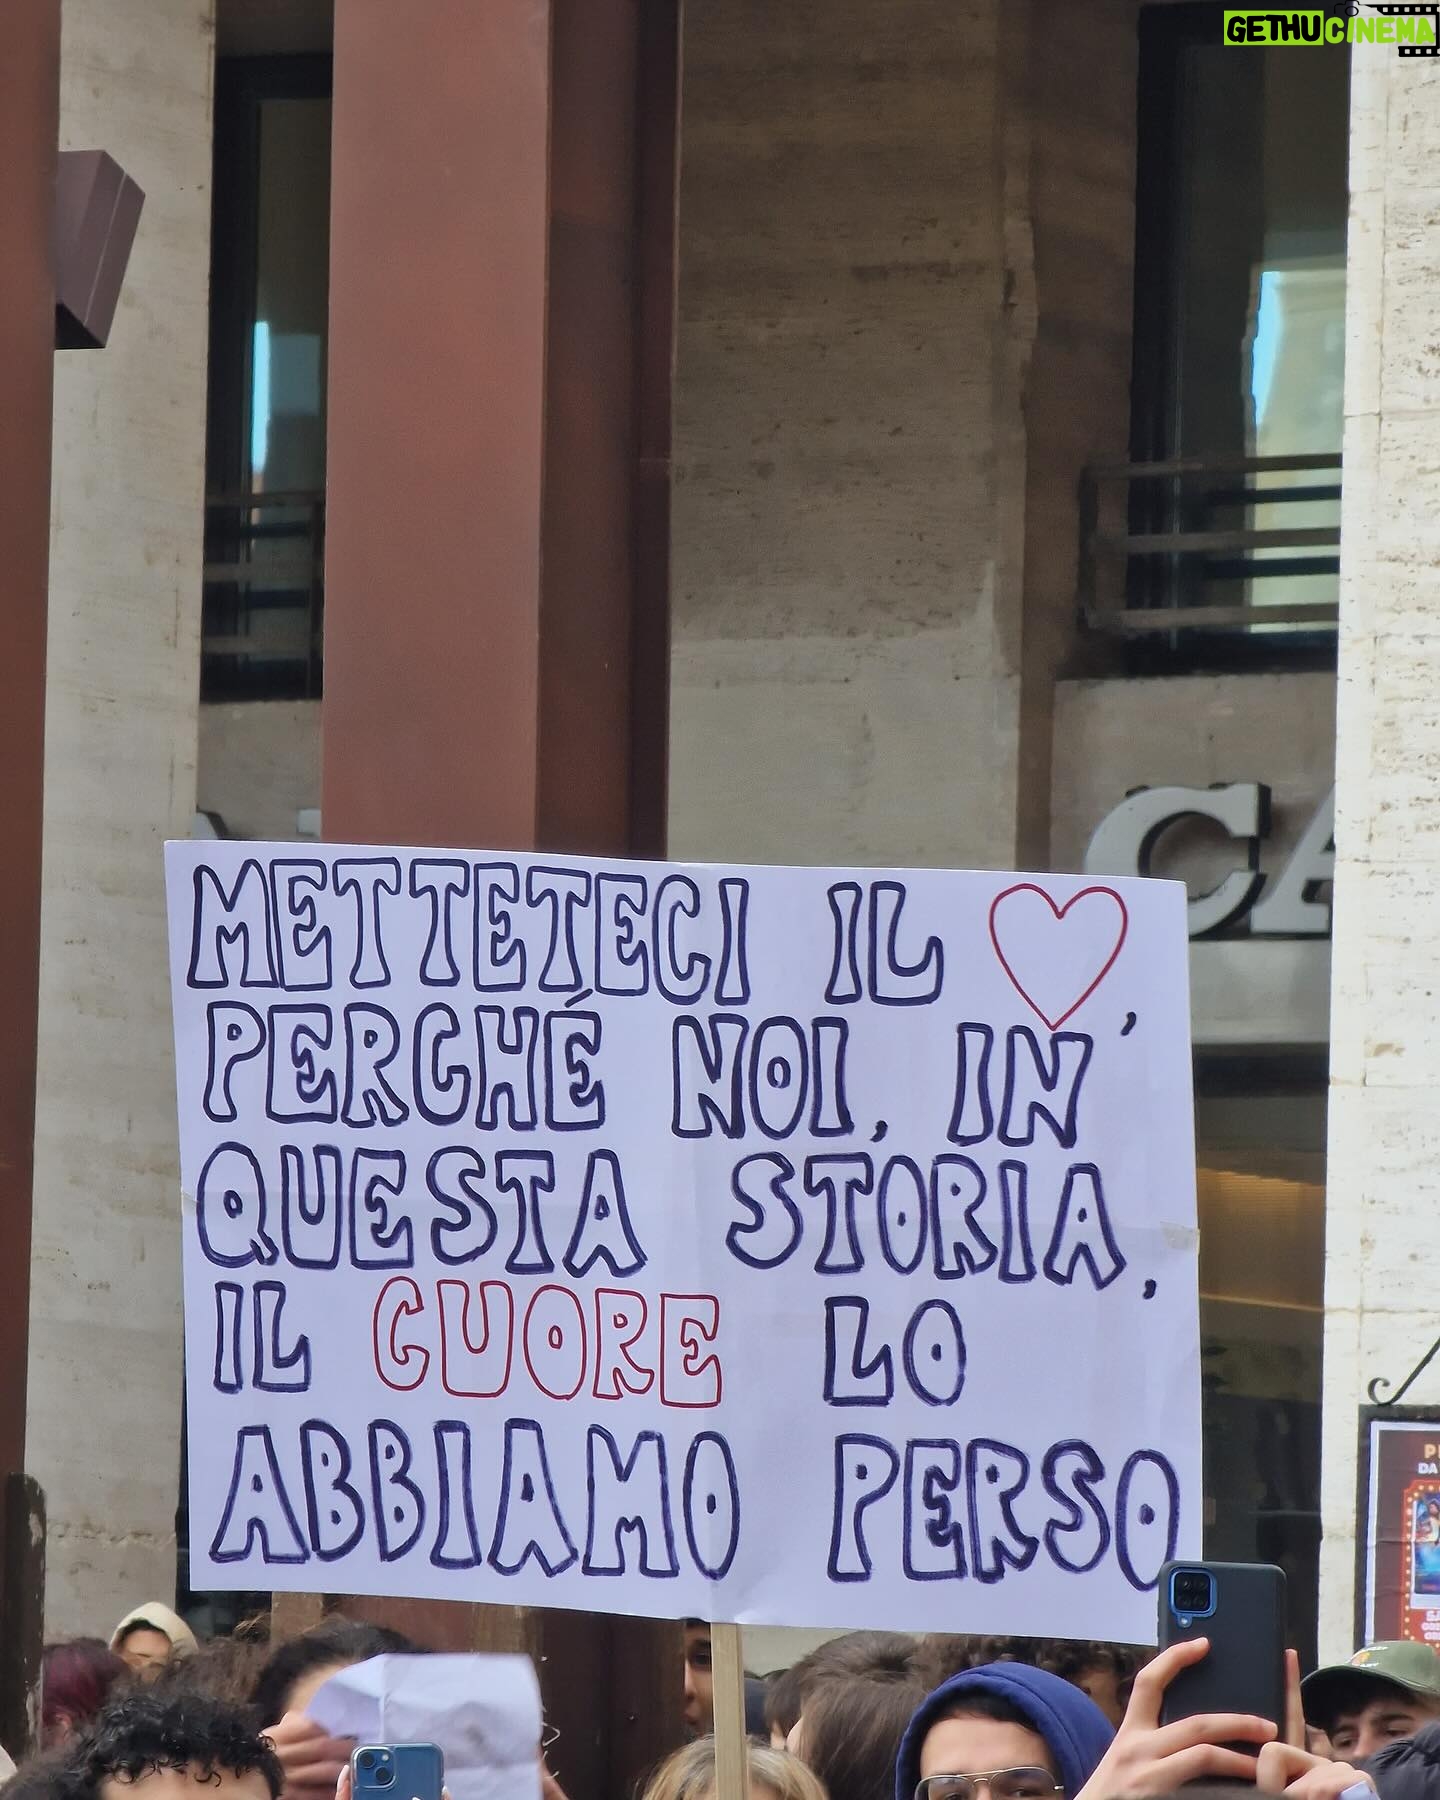 GETHUCINEMA
CA
METTETECI IL ♡,
PERCHÉ NOI, IN
QUESTA STORIA,
IL CUORE LO
ABBIAMO PERSO